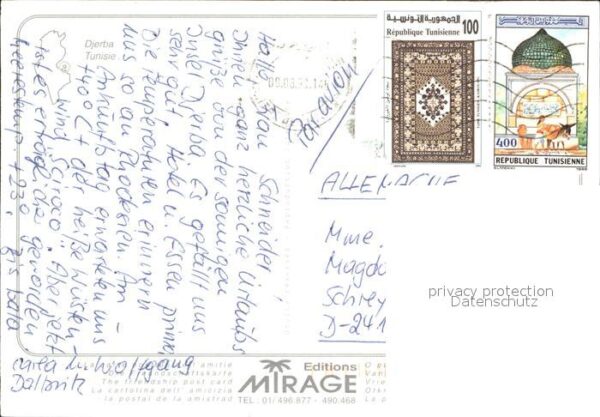 Djerba
Tunisie
Hallo Frau Schneider,
Ihnen ganz herzliche Urlaubs
grüße von der sonnigen
Insel Djerba. Es gefällt uns
sehr gut. Hotel u. Essen prima,
Die Temperaturen erinnern
uns so an Rhodesien. Am
Ankunftstag erwarteten uns
+40°C + der heiße Wüsten-
wind Aber jetzt
ist es erträglicher geworden
+23°,
Bis bald
Wolfgang
Par avion
الجمهورية التونسية
100
République Tunisienne
400
REPUBLIQUE TUNISIENNE
ALLEMAGNE
Mme.
Magda
Schrey
D-241
privacy protection
Datenschutz
The friendship post card
La cartolina dell' amicizia
la postal de la amistad
Editions
MIRAGE
TEL. 01/ 496.877 - 490.468